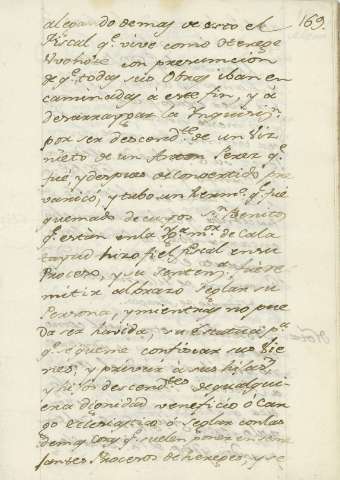 169.
alegando demas de esto el
Fiscal q.e vive como Herege
con presumcion
de q.e todas sus Obras iban en
caminadas á este fin, y á
desarraygar la Inquisiz.n
por ser descend.te de un Viz
nieto de un Anton Perez q.e
fué, y despues de Convertido pre
varicó, y tubo un herm.o q.e fué
quemado de cuyos S.n Benito
q.e estan en la de Cala
tayud hizo fé el fiscal en su
Proceso, y su Senten.a fué re
mitir al brazo Seglar su
Persona, y mientras no pue
da ser havida, su Estatua p.a
q.e se queme confiscar sus Vie
nes, y privar á sus hijas
y hijos descend.tes de qualqui
era dignidad veneficio ó Car
go Eclesiastico ó Seglar con las
demas Cosas q.e suelen poner en seme
jantes Procesos de hereges, y se